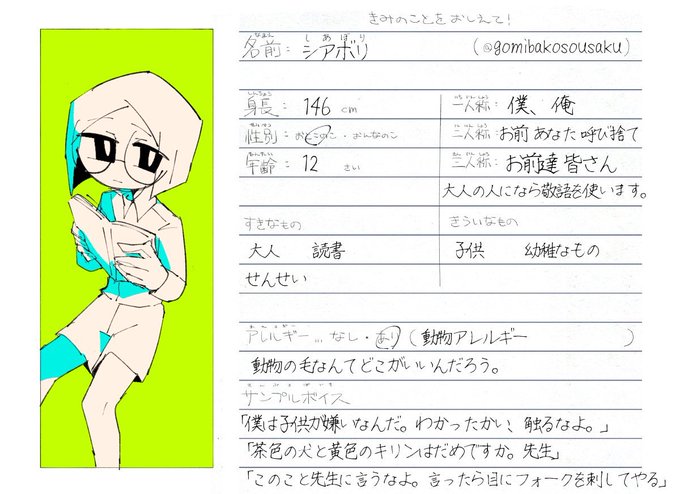 きみのことをおしえて!
名前: シアボリ (@gomibakosousaku)
身長: 146 cm 一人称: 僕、俺
性別: おとこのこ・おんなのこ 二人称: お前 あなた 呼び捨て
年齢: 12 さい 三人称: お前達 皆さん
大人の人になら敬語を使います。
すきなもの きらいなもの
大人 読書 子供 幼稚なもの
せんせい
アレルギー… なし・あり (動物アレルギー )
動物の毛なんてどこがいいんだろう。
サンプルボイス
「僕は子供が嫌いなんだ。わかったかい、触るなよ。」
「茶色の犬と黄色のキリンはだめですか。先生」
「このこと先生に言うなよ。言ったら目にフォークを刺してやる」